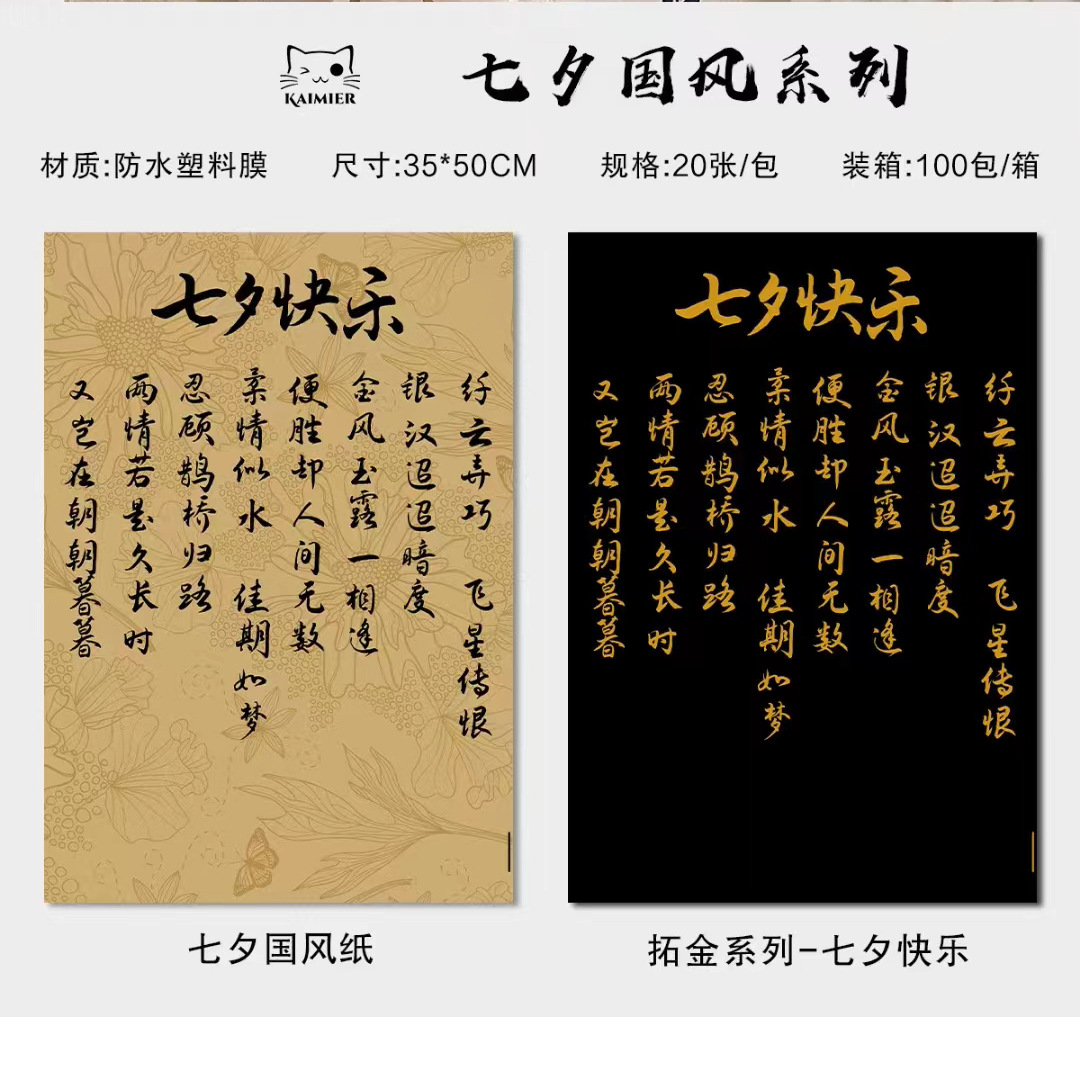 KAIMIER
七夕国风系列
材质:防水塑料膜
尺寸:35*50CM
规格:20张/包
装箱:100包/箱
七夕快乐
纤云弄巧 飞星传恨
银汉迢迢暗度
金风玉露一相逢
便胜却人间无数
柔情似水 佳期如梦
忍顾鹊桥归路
两情若是久长时
又岂在朝朝暮暮
七夕国风纸
七夕快乐
纤云弄巧 飞星传恨
银汉迢迢暗度
金风玉露一相逢
便胜却人间无数
柔情似水 佳期如梦
忍顾鹊桥归路
两情若是久长时
又岂在朝朝暮暮
拓金系列-七夕快乐